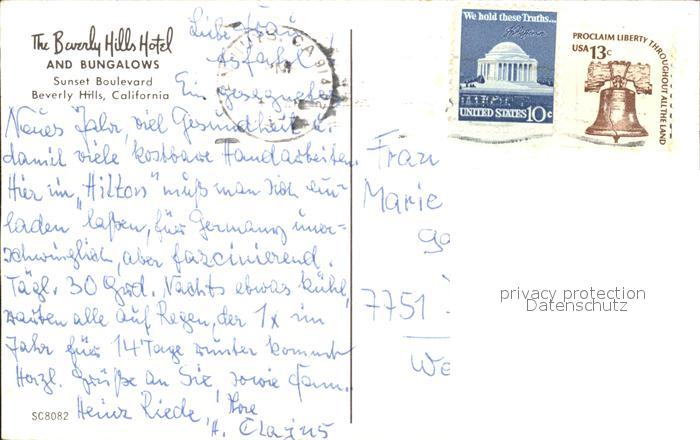 The Beverly Hills Hotel
AND BUNGALOWS
Sunset Boulevard
Beverly Hills, California
Liebe Frau
Ein gesegnetes
Neues Jahr, viel Gesundheit u.
damit viele kostbare Handarbeiten.
Hier im „Hilton" muß man sich ein-
laden laßen, für Germans uner-
schwinglich, aber faszinierend.
Tägl. 30 Grd. Nachts etwas kühl,
warten alle auf Regen, der 1x im
Jahr für 14 Tage runter kommt
Herzl. Grüße an Sie, sowie Fam.
Heinz Riede,
H. Clajus
SC8082
We hold these Truths...
UNITED STATES 10c
PROCLAIM LIBERTY THROUGHOUT ALL THE LAND
USA 13c
Frau
Marie
7751
We
privacy protection
Datenschutz